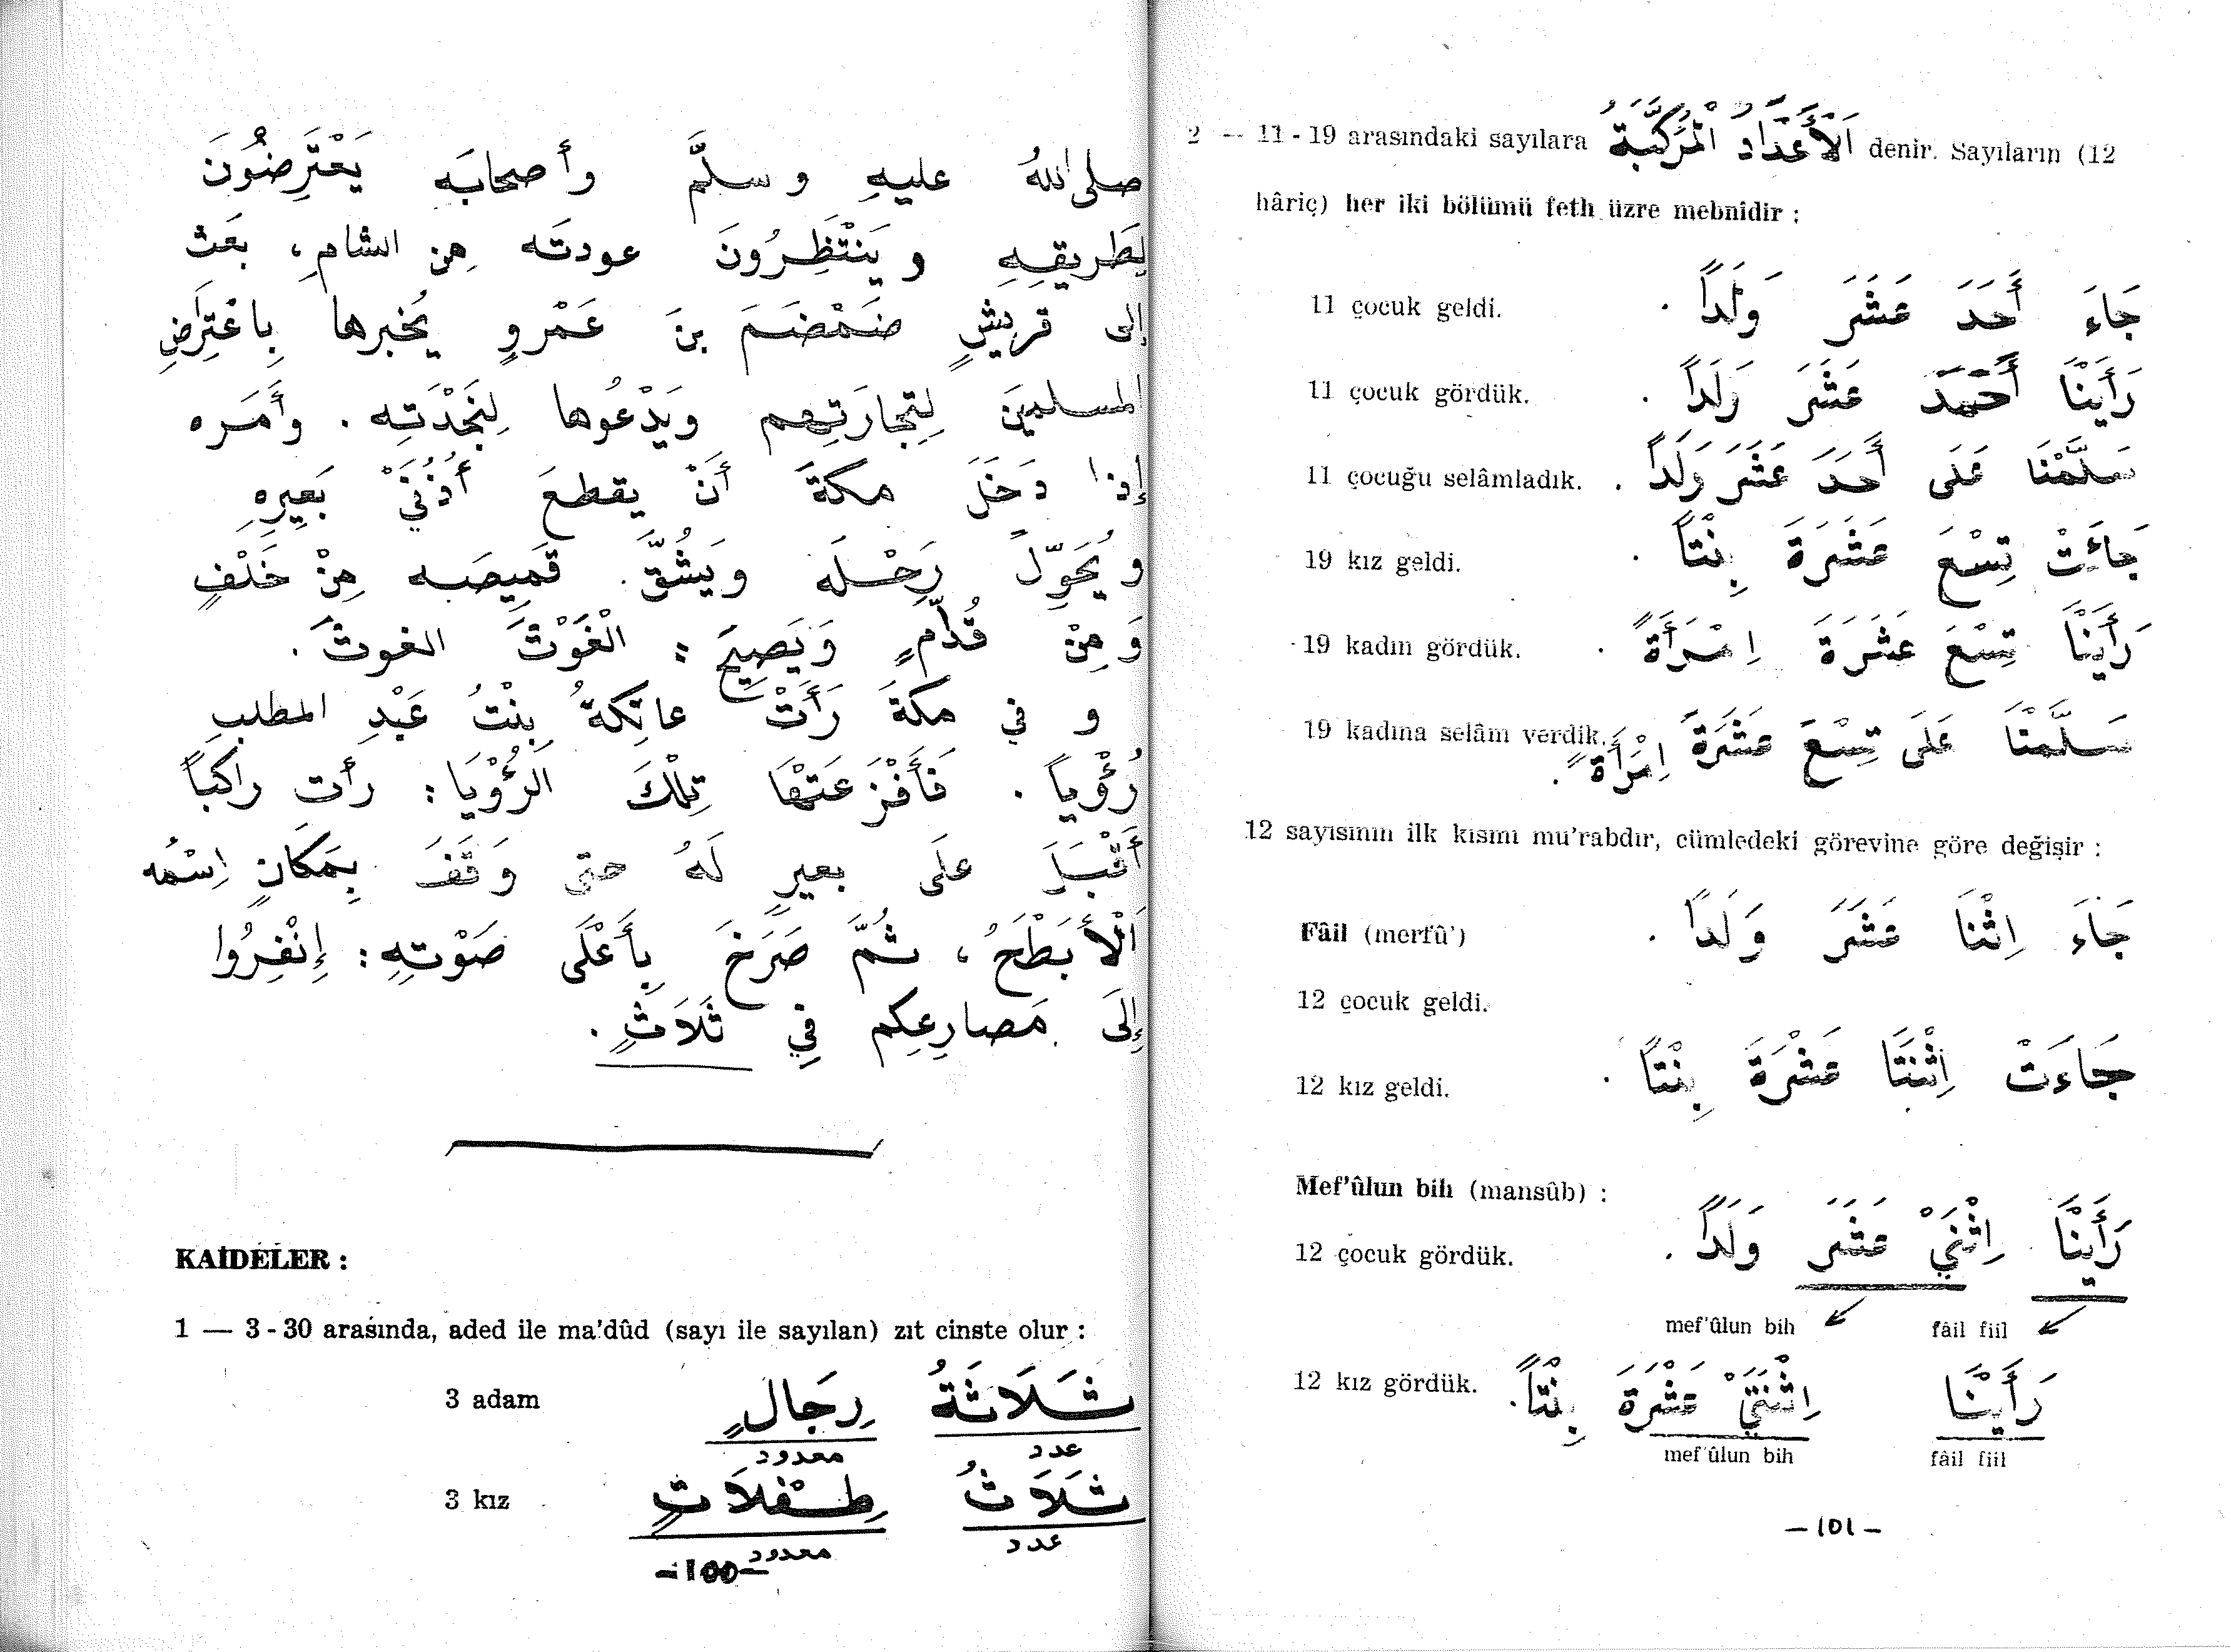 صلى اللهُ عليهِ وسلَّم وأصحابَه يَعْتَرِضُونَ
لِطَريقِهِ ويَنْتَظِرُونَ عودتَه مِن الشامِ، بعَث
إلى قريشٍ ضَمْضَمَ بنَ عَمْروٍ يُخبرها بِاعْتِرَاضِ
المسلمينَ لِتِجارَتِهم ويَدْعُوها لِنَجْدَتِه. وأَمَره
إذا دَخَلَ مكةَ أَنْ يقطعَ أُذُنَيْ بَعِيرِهِ
ويُحَوِّلَ رَحْلَه ويَشُقَّ قَمِيصَه مِنْ خَلْفٍ
وَمِنْ قُدَّامٍ وَيَصِيحَ: الْغَوْثَ الغوثَ.
و في مكةَ رَأَتْ عاتِكةُ بِنْتُ عَبْدِ المطلبِ
رُؤْياً. فَأَفْزَعَتْهَا تِلْكَ الرُؤْيَا: رأت راكباً
أَقْبَلَ علَى بعيرٍ لَهُ حتى وَقَفَ بِمَكَانٍ اِسْمُه
اَلْأَبْطَحُ، ثُمَّ صَرَخَ بِأَعْلَى صَوْتِهِ: إِنْفِرُوا
إِلَى مَصارِعِكم فِي ثَلَاثٍ.
KAİDELER :
1 — 3 - 30 arasında, aded ile ma'dûd (sayı ile sayılan) zıt cinste olur :
3 adam ثَلَاثَةُ رِجَالٍ
عدد معدود
3 kız ثَلَاثُ طِفْلَاتٍ
عدد معدود
-100-
2 — 11 - 19 arasındaki sayılara اَلْأَعْدَادُ الْمُرَكَّبَةُ denir. Sayıların (12
hâriç) her iki bölümü feth üzre mebnîdir :
11 çocuk geldi. جَاءَ أَحَدَ عَشَرَ وَلَداً .
11 çocuk gördük. رَأَيْنَا أَحَدَ عَشَرَ وَلَداً .
11 çocuğu selâmladık. سَلَّمْنَا عَلَى أَحَدَ عَشَرَ وَلَداً .
19 kız geldi. جَائَتْ تِسْعَ عَشَرَةَ بِنْتاً .
19 kadın gördük. رَأَيْنَا تِسْعَ عَشَرَةَ اِمْرَأَةً .
19 kadına selâm verdik. سَلَّمْنَا عَلَى تِسْعَ عَشَرَةَ اِمْرَأَةً .
12 sayısının ilk kısmı mu'rabdır, cümledeki görevine göre değişir :
Fâil (merfû') جَاءَ اِثْنَا عَشَرَ وَلَداً .
12 çocuk geldi.
12 kız geldi. جَاءَتْ اِثْنَتَا عَشْرَةَ بِنْتاً .
Mef'ûlun bih (mansûb) :
12 çocuk gördük. رَأَيْنَا اِثْنَيْ عَشَرَ وَلَداً .
mef'ûlun bih fâil fiil
12 kız gördük. رَأَيْنَا اِثْنَتَيْ عَشْرَةَ بِنْتاً .
mef'ûlun bih fâil fiil
-101-